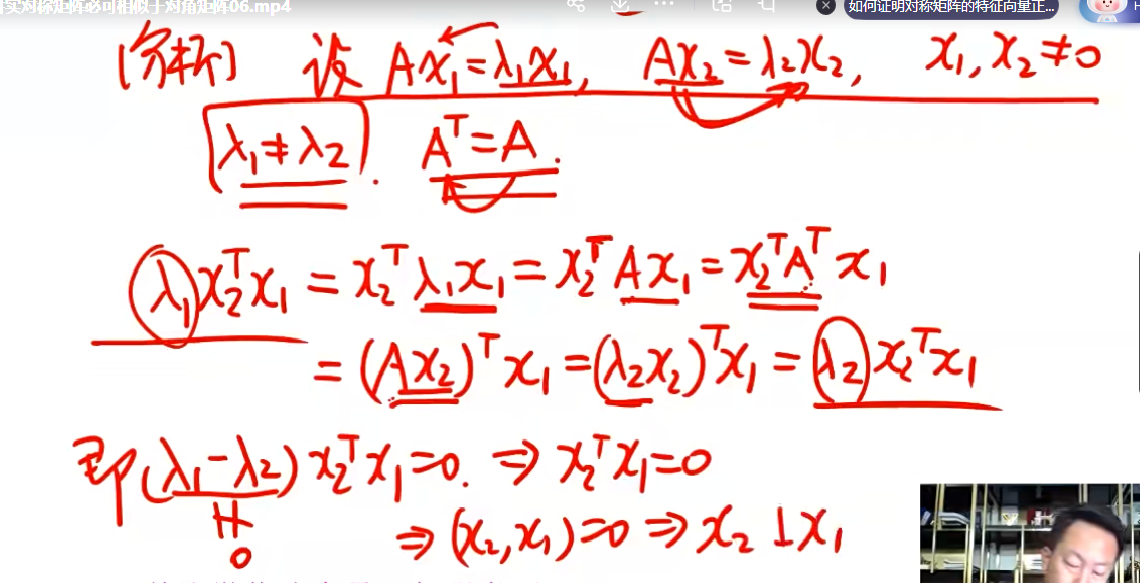 实对称矩阵必可相似于对角矩阵06.mp4
如何证明对称矩阵的特征向量正...
[分析] 设 Ax₁=λ₁x₁, Ax₂=λ₂x₂, x₁,x₂≠0
λ₁≠λ₂. Aᵀ=A.
λ₁x₂ᵀx₁=x₂ᵀλ₁x₁=x₂ᵀAx₁=x₂ᵀAᵀx₁
=(Ax₂)ᵀx₁=(λ₂x₂)ᵀx₁=λ₂x₂ᵀx₁
即(λ₁-λ₂)x₂ᵀx₁=0. ⇒ x₂ᵀx₁=0
0
⇒(x₂,x₁)=0⇒x₂⊥x₁